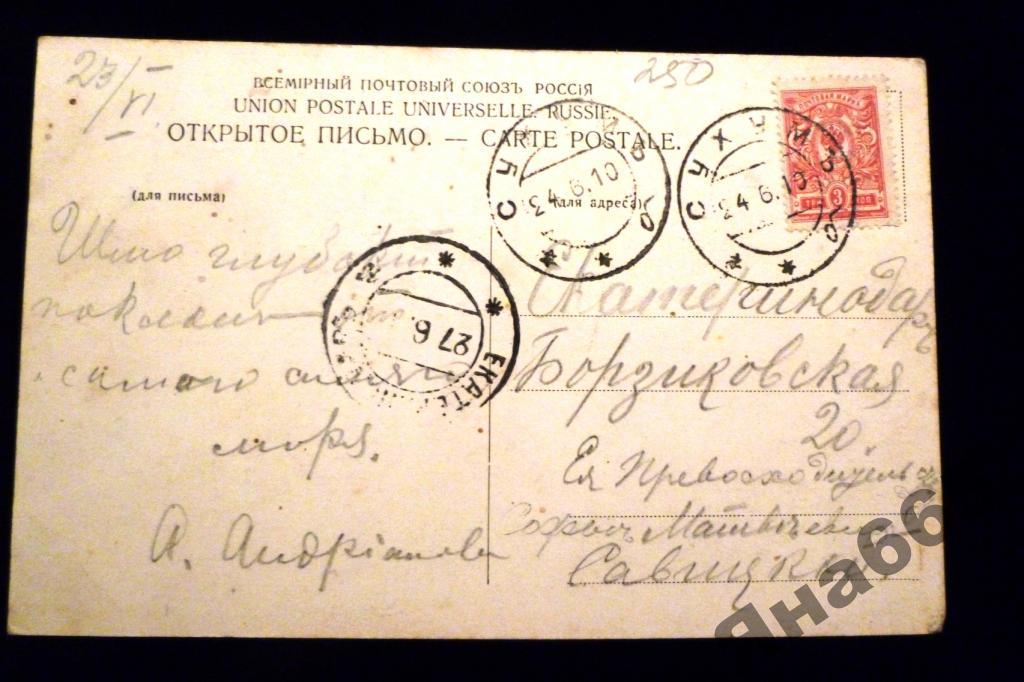 23/VI
250
ВСЕМІРНЫЙ ПОЧТОВЫЙ СОЮЗЪ РОССІЯ
UNION POSTALE UNIVERSELLE. RUSSIE.
ОТКРЫТОЕ ПИСЬМО. — CARTE POSTALE.
(для письма)
(для адреса)
СУХУМЪ
24.6.10
СУХУМЪ
24.6.10
ПОЧТОВАЯ МАРКА
3
ЕКАТЕ
27 6.
Шлю глубокій
поклонъ
самого синяго
моря.
А. Андріанова
Екатеринодаръ
Борзиковская
20.
Ея Превосходительству
Матвѣевнѣ
Савицкой
Яна66